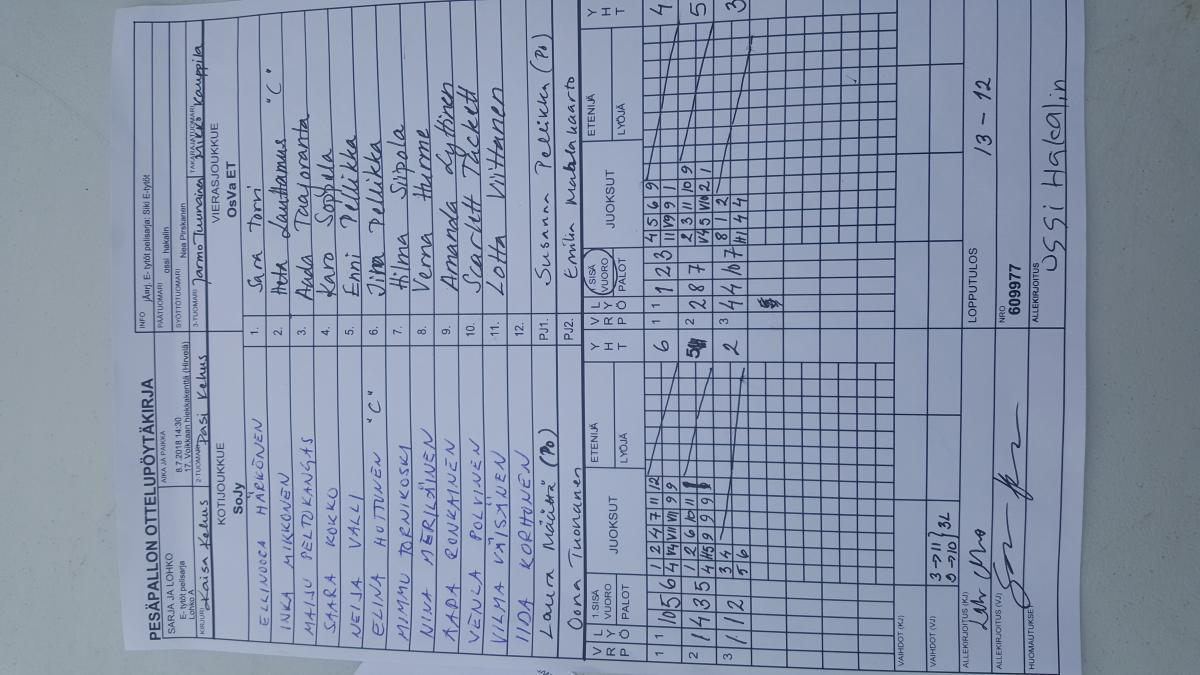 PESÄPALLON OTTELUPÖYTÄKIRJA
SARJA JA LOHKO
E- tytöt pelisarja
Lohko A
AIKA JA PAIKKA
8.7.2018 14:30
17. Voikkaan hiekkakenttä (Hirvelä)
INFO
E- tytöt pelisarja; Siki E-tytöt
PÄÄTUOMARI
ossi hakalin
SYÖTTÖTUOMARI
Nea Pirskanen
KIRJURI Kaisa Kehus
2-TUOMARI Pasi Kehus
3-TUOMARI Jarmo Tuunainen
TAKARAJATUOMARI Mikko Kauppila
KOTIJOUKKUE
SoJy
VIERASJOUKKUE
OsVa ET
ELLINOORA HÄRKÖNEN 1. Sara Torri
INKA MIKKONEN 2. Heta Lauttamus "C"
MAIJU PELTOKANGAS 3. Aada Taajoranta
SAARA KOKKO 4. Karo Soppela
NEIJA VALLI 5. Enni Pellikka
ELINA HUTTINEN "C" 6. Jina Pellikka
MIMMU TORNIKOSKI 7. Hilma Siipola
NINA MERILÄINEN 8. Verna Hurme
AADA ROUKAINEN 9. Amanda Lyttinen
VENLA POLVINEN 10. Scarlett Tackett
VILMA VÄISÄNEN 11. Lotta Viittanen
IIDA KORHONEN 12.
Laura Määttä (Po) PJ1. Susanna Pellikka (Po)
Oona Tuonanen PJ2. Emilia
V R P L Y Ö 1.SISÄ VUORO PALOT JUOKSUT ETENIJÄ LYÖJÄ Y H T
V R P L Y Ö SISÄ VUORO PALOT JUOKSUT ETENIJÄ LYÖJÄ Y H T
1 1 10 5 6 1 2 4 7 11 12 6
1 1 2 3 4 5 6 9 4
2 1 4 3 5 1 2 6 10 11 5
2 2 8 7 2 3 11 10 9 5
3 1 12 3 4 2
5 6
3 4 4 10 7 8 1 2 3
VAIHDOT (KJ)
VAIHDOT (VJ)
3→11
9→10 } 3L
ALLEKIRJOITUS (KJ)
ALLEKIRJOITUS (VJ)
HUOMAUTUKSET
LOPPUTULOS 13 - 12
NRO
609977
ALLEKIRJOITUS
Ossi Hakalin